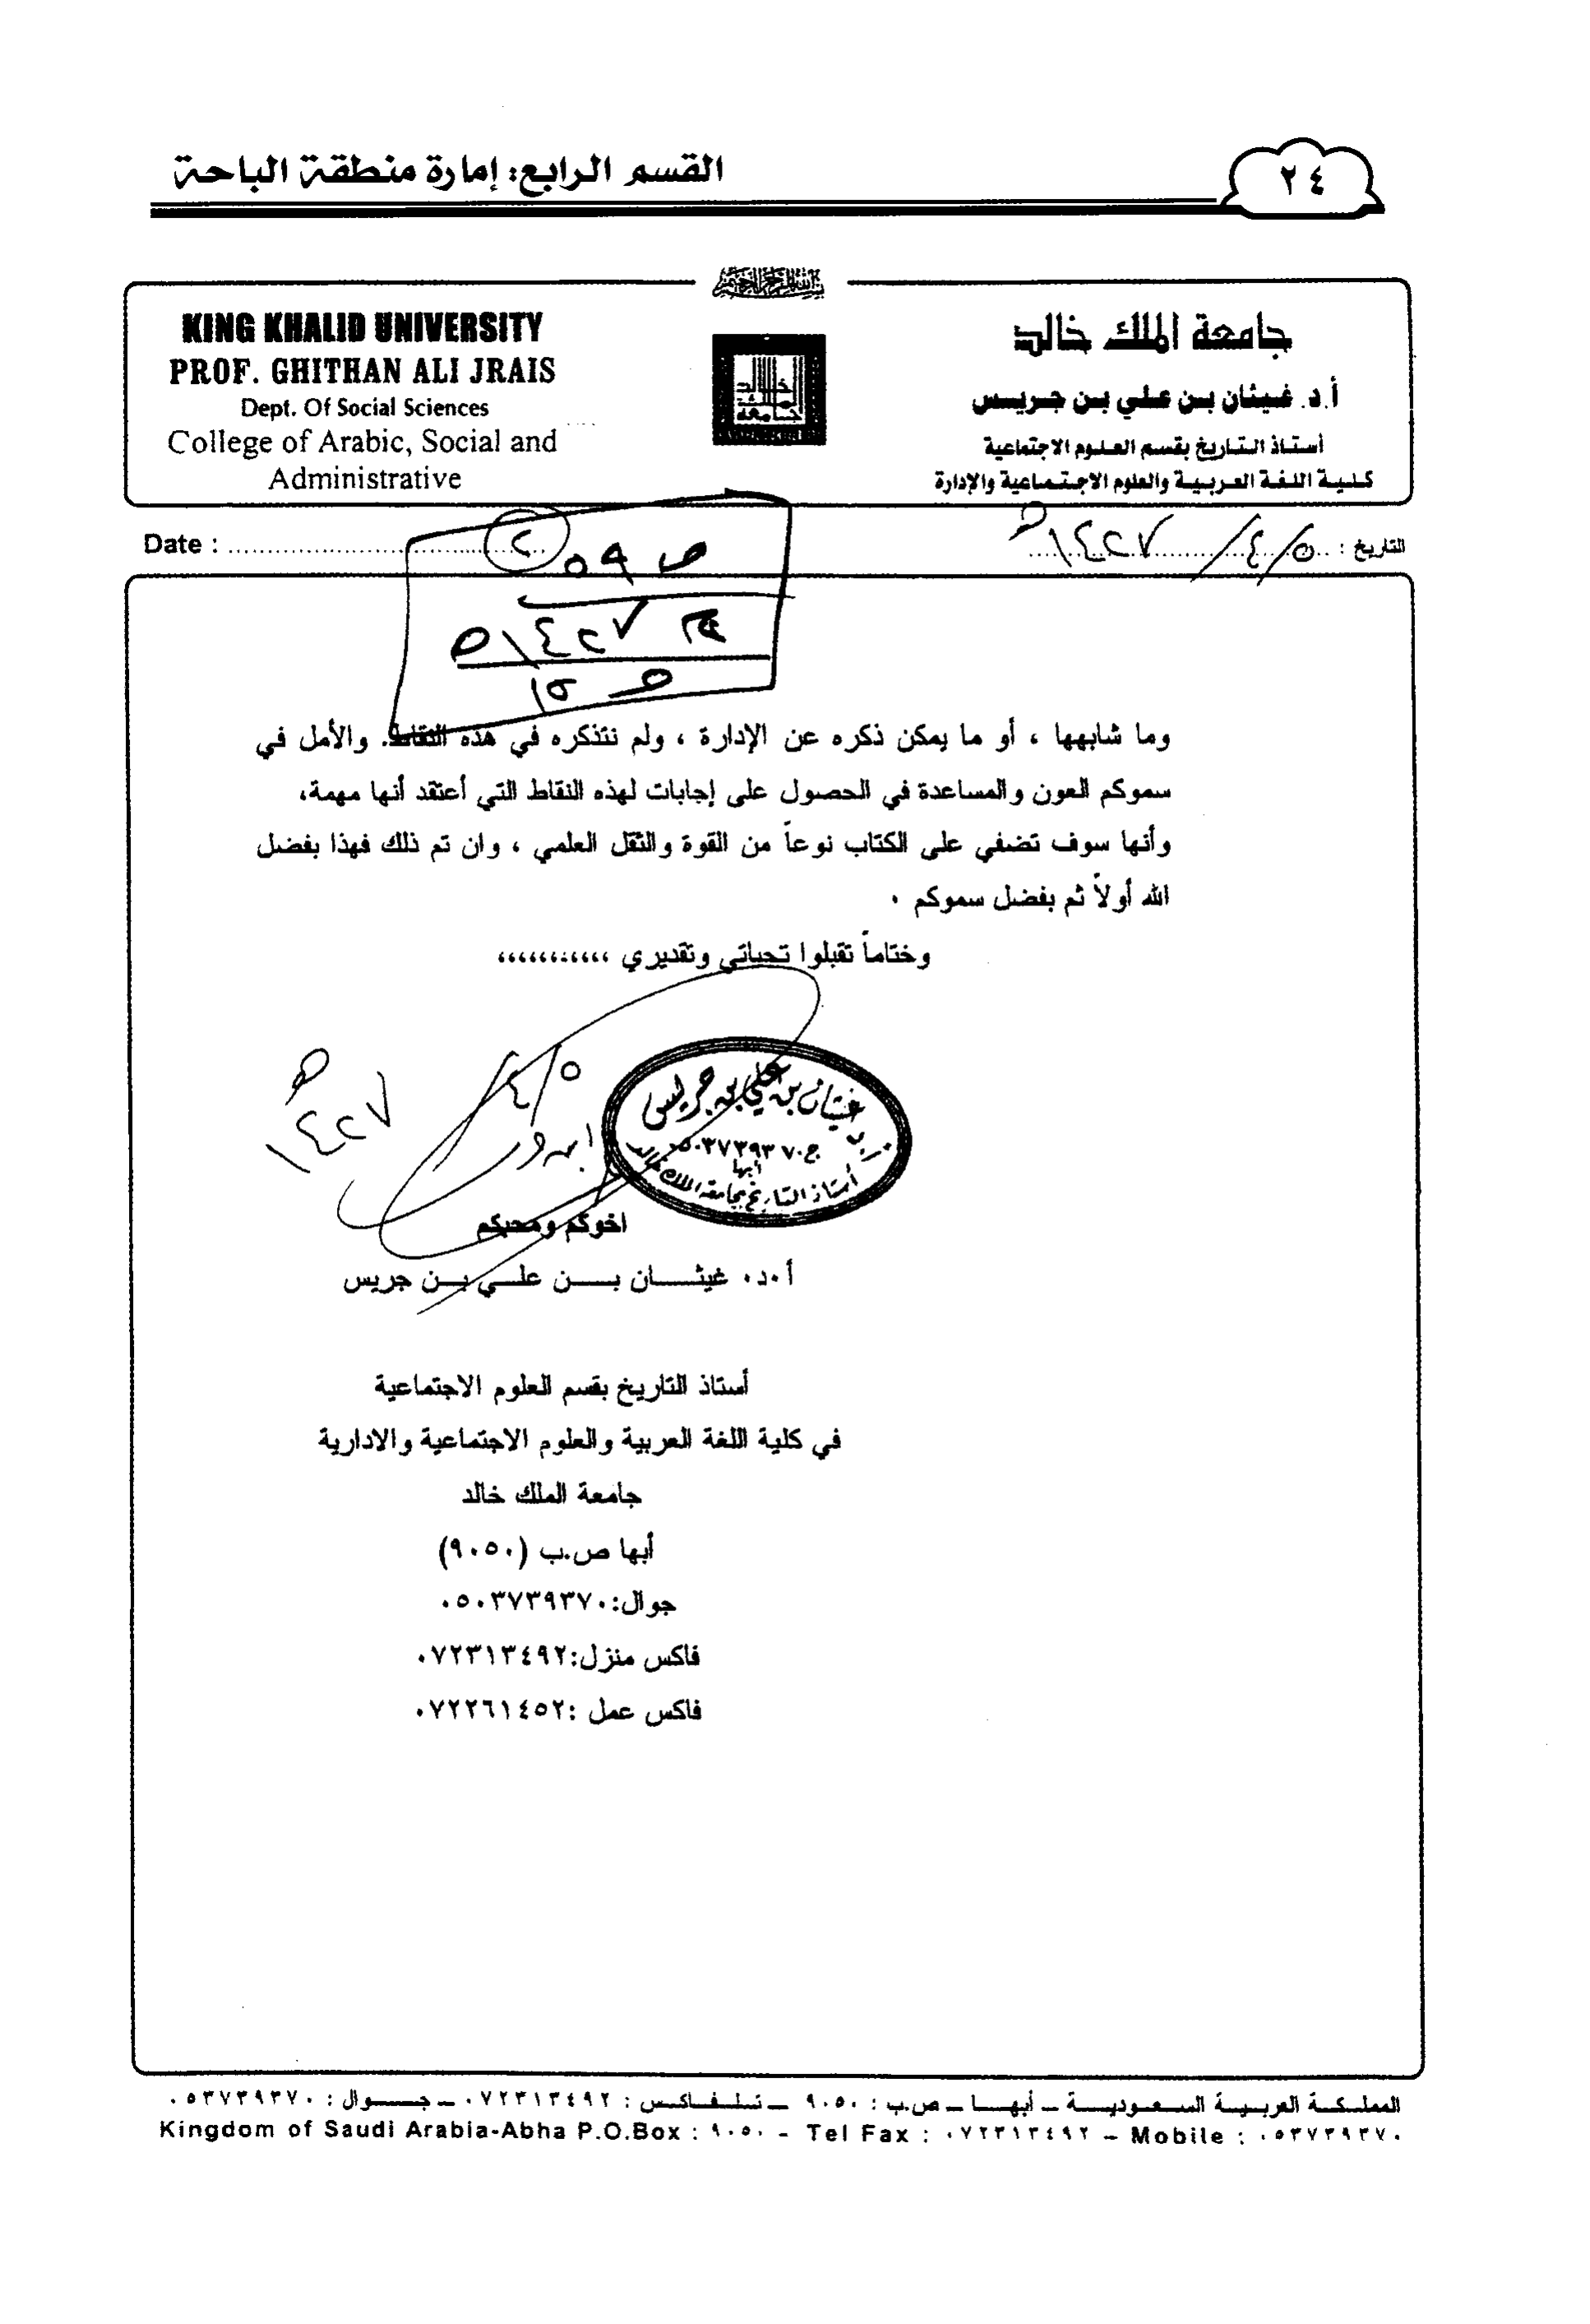 القسم الرابع: إمارة منطقة الباحة
٢٤
بسم الله الرحمن الرحيم
KING KHALID UNIVERSITY
PROF. GHITHAN ALI JRAIS
Dept. Of Social Sciences
College of Arabic, Social and
Administrative
جامعة الملك خالد
أ.د. غيثان بن علي بن جريس
أستاذ التاريخ بقسم العلوم الاجتماعية
كلية اللغة العربية والعلوم الاجتماعية والإدارة
التاريخ : ٥/٤/١٤٢٧هـ
Date :
٢
ص ٥٩
١٤٢٧هـ
ص ١٥
وما شابهها ، أو ما يمكن ذكره عن الإدارة ، ولم نتذكره في هذه النقاط. والأمل في
سموكم العون والمساعدة في الحصول على إجابات لهذه النقاط التي أعتقد أنها مهمة،
وأنها سوف تضفي على الكتاب نوعاً من القوة والثقل العلمي ، وان تم ذلك فهذا بفضل
الله أولاً ثم بفضل سموكم ٠
وختاماً تقبلوا تحياتي وتقديري ،،،،،،،،،،،
٥/٤
١٤٢٧هـ
غيثان بن علي بن جريس
ج ٠٥٠٣٧٣٩٣٧٠
أبها
أستاذ التاريخ بجامعة الملك خالد
اخوكم ومحبكم
أ٠د٠ غيثـــان بـــن علـــي بـن جريس
أستاذ التاريخ بقسم العلوم الاجتماعية
في كلية اللغة العربية والعلوم الاجتماعية والادارية
جامعة الملك خالد
أبها ص.ب (٩٠٥٠)
جوال:٠٥٠٣٧٣٩٣٧٠
فاكس منزل:٠٧٢٣١٣٤٩٢
فاكس عمل :٠٧٢٢٦١٤٥٢
المملكة العربية السعودية – أبهـا – ص.ب : ٩٠٥٠ – تـلـفـاكـس : ٠٧٢٣١٣٤٩٢ – جـوال : ٠٥٣٧٣٩٣٧٠
Kingdom of Saudi Arabia-Abha P.O.Box : ٩٠٥٠ - Tel Fax : ٠٧٢٣١٣٤٩٢ – Mobile : ٠٥٣٧٣٩٣٧٠